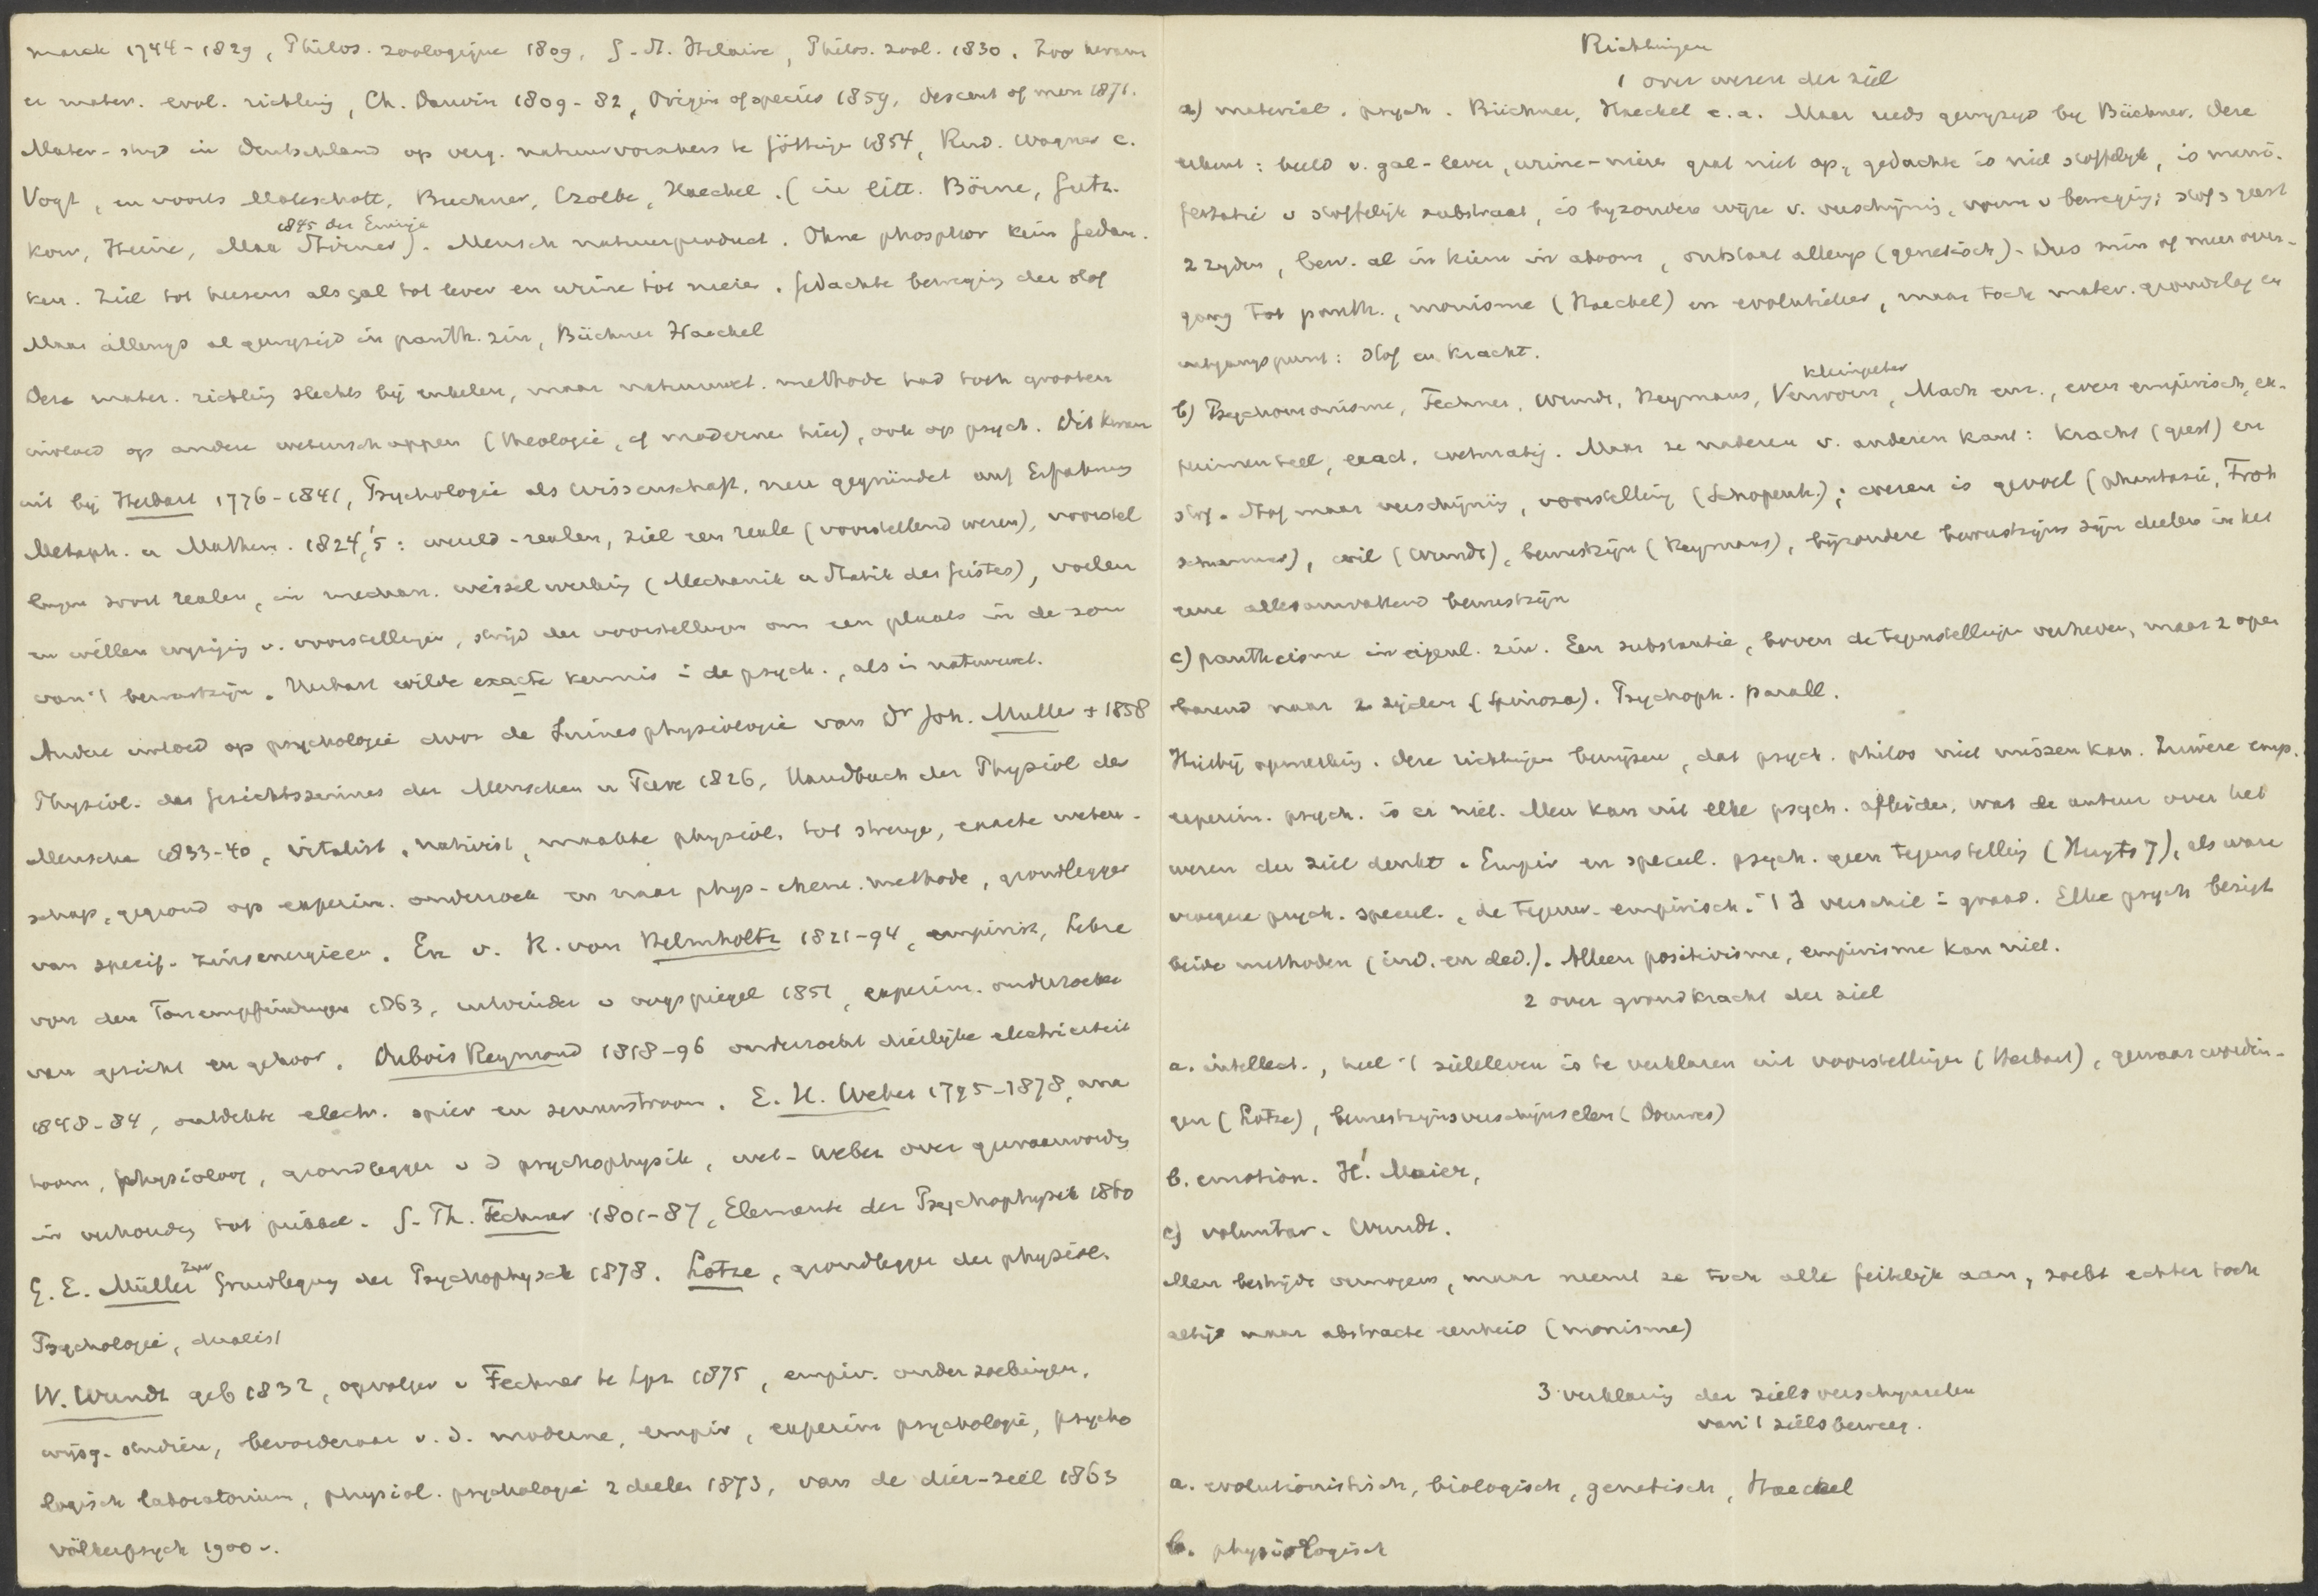 marck 1744-1829, Philos. zoologique 1809, G. St. Hilaire, Philos. zool. 1830. Zoo kwam
er mater. evol. richting, Ch. Darwin 1809-82, Origin of species 1859, descent of men 1871.
Mater-strijd in Deutschland op verg. natuurvorschers te Göttinge 1854, Rud. Wagner c.
Vogt, en voorts Moleschott, Buchner, Czolbe, Haeckel. (in litt. Börne, Gutz-
1845 der Einzige
kow, Heine, Max Stirner). Mensch natuurproduct. Ohne phosphor kein Gedan-
ken. Ziel tot hersens als gal tot lever en urine tot nieren. Gedachte beweging der stof
Maar allengs al gewijzigd in panth. zin, Büchner Haeckel
Deze mater. richting slechts bij enkelen, maar natuurwet. methode had toch grooten
invloed op andere wetenschappen (theologie, cf moderne hier), ook op psych. Dit kwam
uit bij Herbart 1776-1841, Psychologie als Wissenschaft, neu gegründet auf Erfahrung
Metaph. u Mathem. 1824,'5: wereld-realen, ziel een reale (voorstellend wezen), voorstel
lingen soort realen, in mechan. wisselwerking (Mechanik u Statik des Geistes), voelen
en willen wijziging v. voorstellingen, strijd der voorstellingen om een plaats in de zon
van 't bewustzijn. Herbart wilde exacte kennis in de psych., als in natuurwet.
Andere invloed op psychologie door de Zinnesphysiologie van Dr Joh. Muller + 1858
Physiol. des Gesichtssinnes der Menschen u Tiere 1826, Handbuch der Physiol der
Mensche 1833-40, vitalist, nativist, maakte physiol. tot strenge, exacte weten-
schap, gegrond op experim. onderzoek en naar phys-chem. methode, grondlegger
van specif. zinsenergieen. En v. H. von Helmholtz 1821-94, empirist, Lehre
von den Tonempfindungen 1863, uitvinder v oogspiegel 1851, experim. onderzoeker
van gezicht en gehoor. Dubois Reymond 1818-96 onderzocht dierlijke electriciteit
1848-84, ontdekte electr. spier en zenuwstroom. E. H. Weber 1795-1878, ana
toom, physioloog, grondlegger v d psychophysik, wet-Weber over gewaarwording
in verhouding tot prikkel. G. Th. Fechner 1801-87, Elemente der Psychophysik 1860
Zur
G. E. Müller Grundlegung der Psychophysik 1878. Lotze, grondlegger der physiol.
Psychologie, dualist
W. Wundt geb 1832, opvolger v Fechner te Lpz 1875, empir. onderzoekingen,
wijsg. studiën, bevorderaar v. d. moderne, empir, experim psychologie, psycho
logisch laboratorium, physiol. psychologie 2 deelen 1873, van de dier-ziel 1863
völkerpsych 1900 v.
Richtingen
1 over wezen der ziel
a) materiel. psych. Büchner, Haeckel e.a. Maar reeds gewijzigd bij Büchner. Deze
erkent: beeld v. gal-lever, urine-nieren gaat niet op, gedachte is niet stoffelijk, is mani-
festatie v stoffelijk substraat, is byzondere wijze v. verschijning, vorm v beweging; stof & geest
2 zyden, bew. al in kiem in atoom, ontstaat allengs (genetisch). Dus min of meer over-
gang tot panth., monisme (Haeckel) en evolutieleer, maar toch mater. grondslag en
uitgangspunt: stof en kracht.
Kleinpeter
b) Psychomonisme, Fechner, Wundt, Heymans, Verworn, Mach enz., even empirisch, ex-
perimenteel, exact, wetmatig. Maar ze naderen v. anderen kant: kracht (geest) en
stof. Stof maar verschijning, voorstelling (Schopenh.); wezen is gevoel (phantasie, Froh
schammer), wil (Wundt), bewustzijn (Heymans), bijzondere bewustzijns zijn deelen in het
eene allesomvattend bewustzijn
c) pantheisme in eigenl. zin. Een substantie, boven de tegenstellingen verheven, maar z open
barend naar 2 zijden (Spinoza). Psychoph. parall.
Hierbij opmerking. Deze richtingen bewijzen, dat psych. philos niet missen kan. Zuivere emp.
experim. psych. is er niet. Men kan uit elke psych. afleiden, wat de auteur over het
wezen der ziel denkt. Empir en specul. psych. geen tegenstelling (Kuyts 7), als ware
vroegere psych. specul., de tegenw. empirisch. 't Is verschil in graad. Elke psych bezigt
beide methoden (ind. en ded.). Alleen positivisme, empirisme kan niet.
2 over grondkracht der ziel
a. intellect., heel 't zieleleven is te verklaren uit voorstellingen (Herbart), gewaarwordin-
gen (Lotze), bewustzijnsverschijnselen (Douwes)
b. emotion. H. Maier,
c) voluntar. Wundt.
Men bestrijdt vermogens, maar neemt ze toch alle feitelijk aan, zoekt echter toch
altijd naar abstracte eenheid (monisme)
3 verklaring der zielsverschijnselen
van 't zielsbeweeg.
a. evolutionistisch, biologisch, genetisch, Haeckel
b. physiologisch